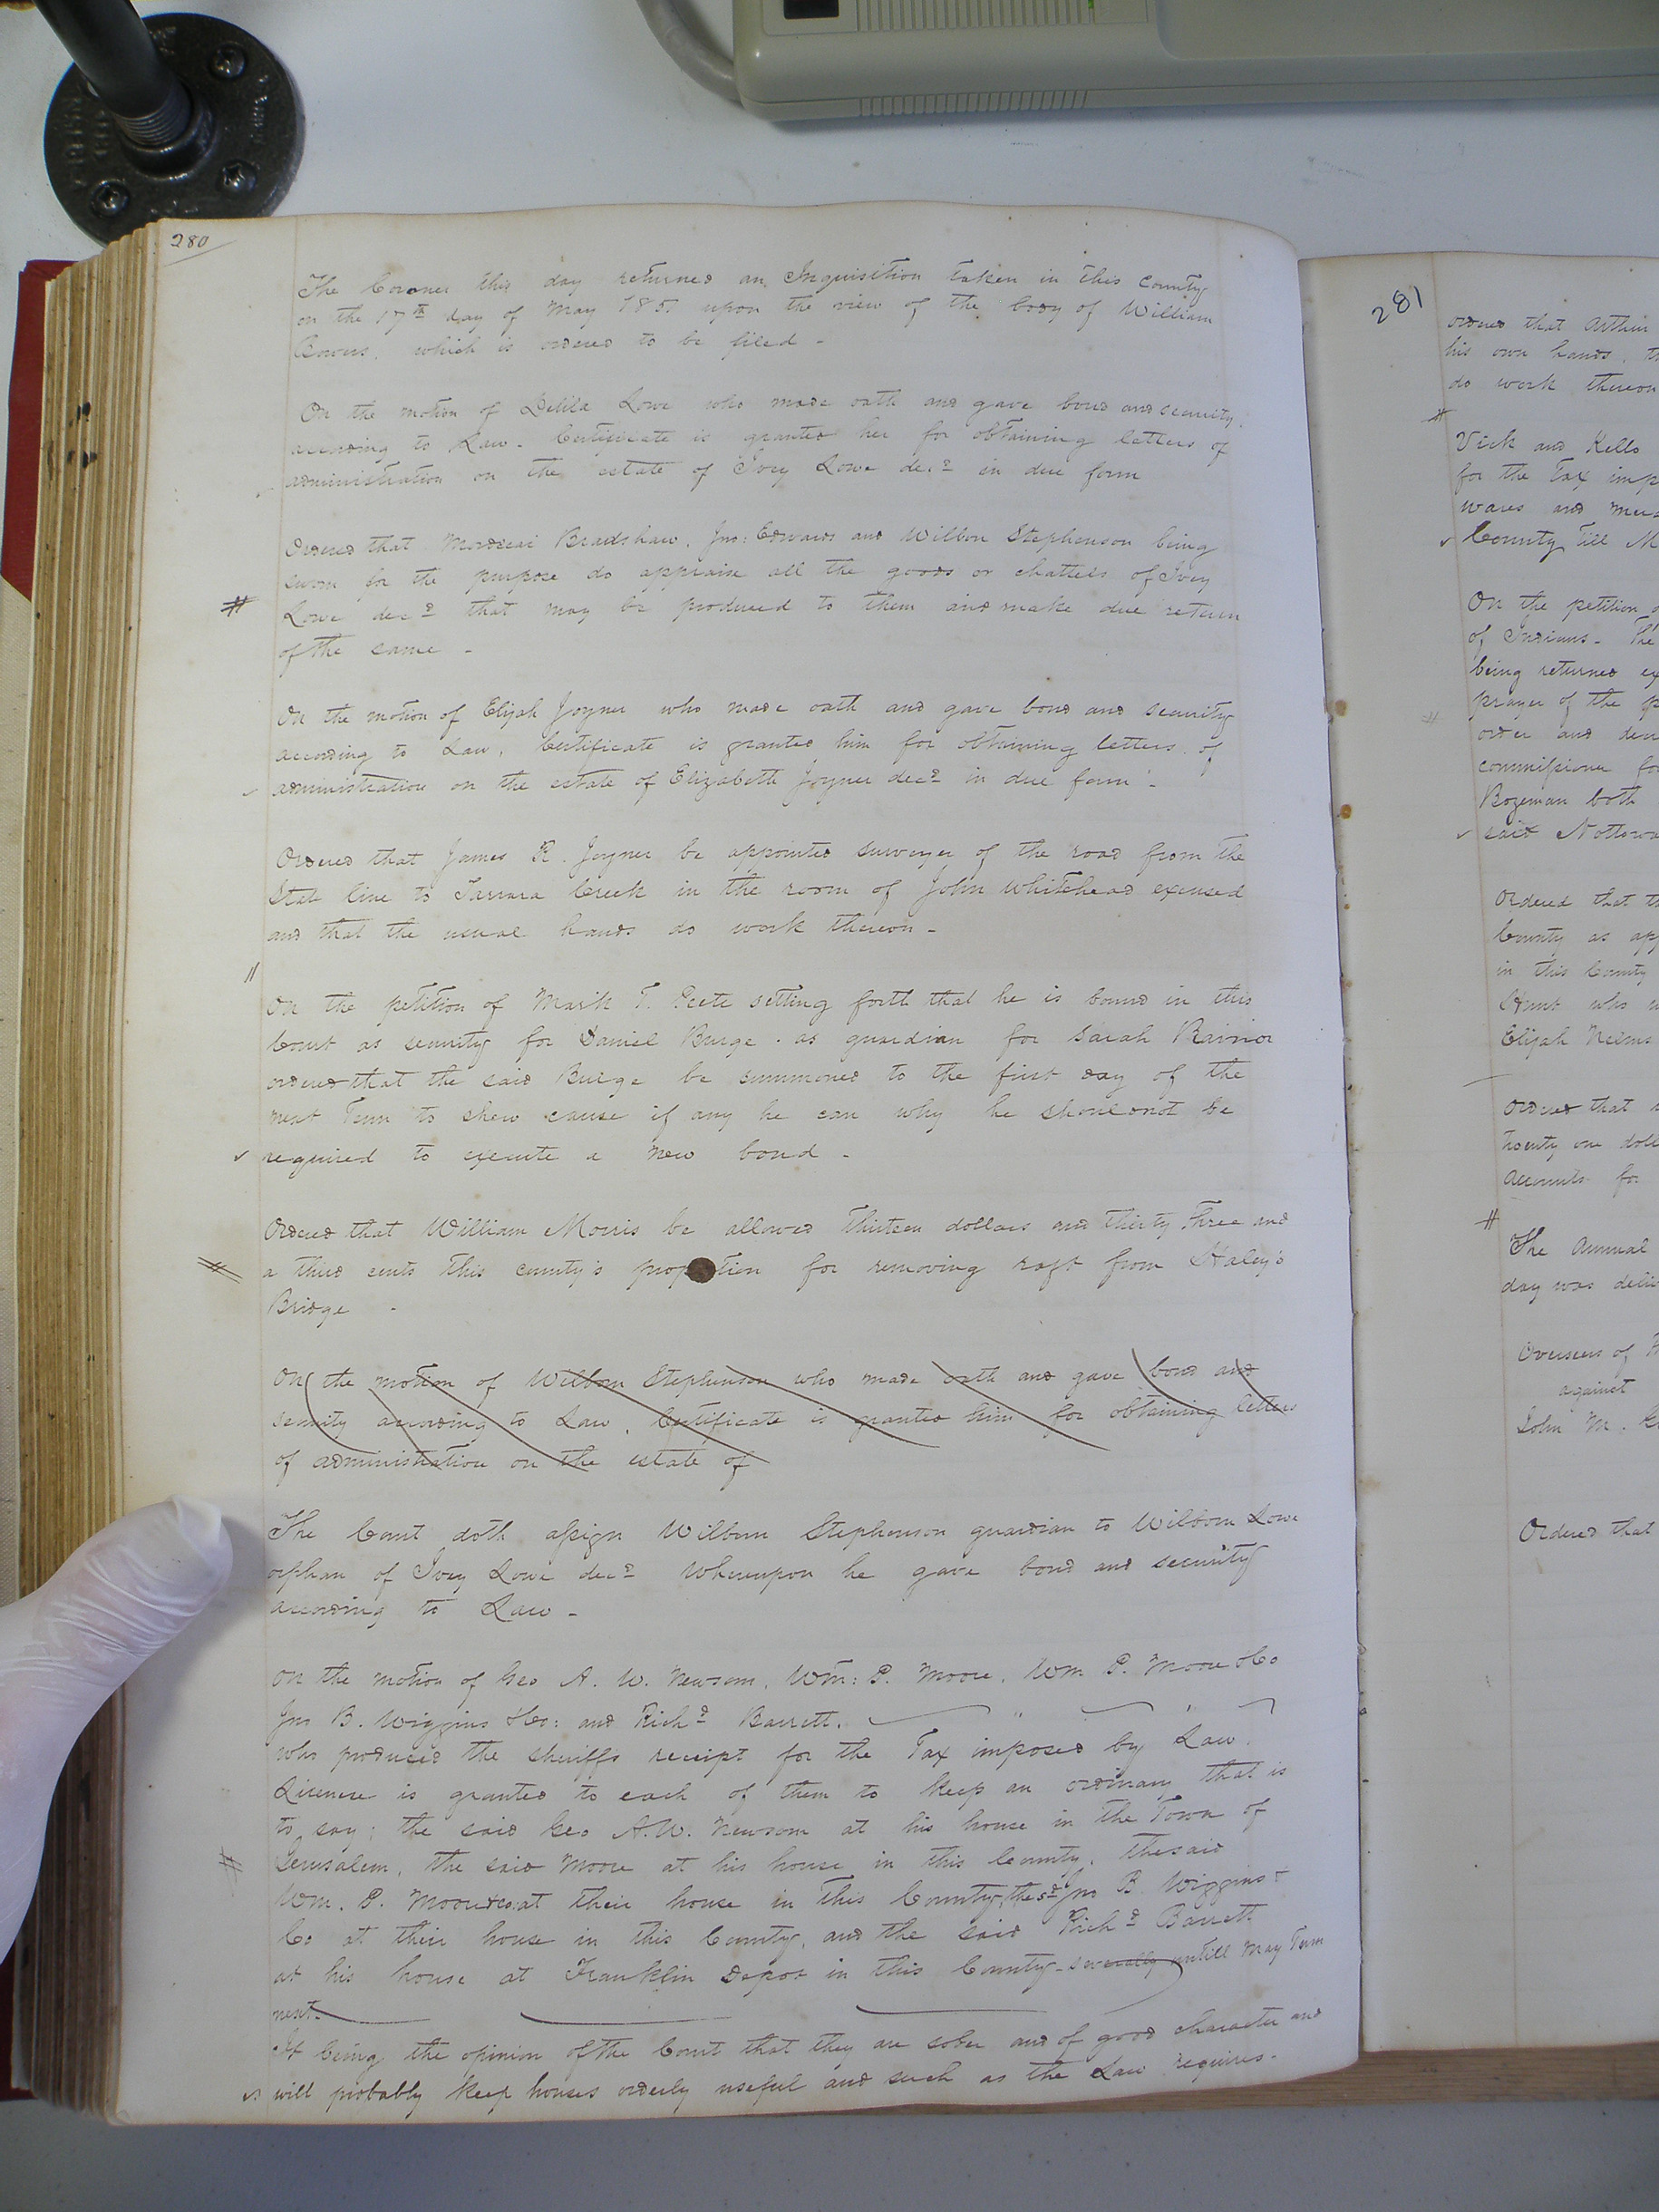 280
The Coroner this day returned an Inquisition taken in this County
on the 17th day of May 185 upon the view of the body of William
Bowers, which is ordered to be filed -
On the motion of Delila Lowe who made oath and gave bond and security
according to Law. Certificate is granted her for obtaining letters of
administration on the estate of Ivey Lowe decd in due form
Ordered that Mordecai Bradshaw, Jno: Edwards and Wilbon Stephenson being
sworn for the purpose do appraise all the goods or chattels of Ivey
Lowe decd that may be produced to them and make due return
of the same -
On the motion of Elijah Joyner who made oath and gave bond and security
according to Law, Certificate is granted him for obtaining letters of
administration on the estate of Elizabeth Joyner decd in due form -
Ordered that James R. Joyner be appointed surveyer of the road from the
State line to Tarrara Creek in the room of John Whitehead excused
and that the usual hands do work thereon -
On the petition of Mark T. Peete setting forth that he is bound in this
Court as security for Daniel Burge as guardian for Sarah
ordered that the said Burge be summoned to the first day of the
next Term to shew cause if any he can why he should not be
required to execute a new bond -
Ordered that William Morris be allowed thirteen dollars and thirty three and
a third cents this county's proportion for removing raft from Haley's
Bridge -
On the motion of Wilborn Stephenson who made oath and gave bond and
security according to Law, Certificate is granted him for obtaining letters
of administration on the estate of
The Court doth assign Wilborn Stephenson guardian to Wilborn Lowe
orphan of Ivey Lowe decd Whereupon he gave bond and security
according to Law -
On the motion of Geo A. W. Newsom, Wm: P. Moore, Wm P. Moore & Co
Jno B. Wiggins & Co: and Richd Barrett.
who produced the sheriffs receipt for the Tax imposed by Law.
License is granted to each of them to keep an ordinary that is
to say; the said Geo A. W. Newsom at his house in the Town of
Jerusalem, the said Moore at his house in this County, the said
Wm. P. Moore & co. at their house in this County, the sd Jno B. Wiggins &
Co at their house in this County, and the said Richd Barrett
at his house at Franklin Depot in this County - severally untill May Term
next.
It being the opinion of the Court that they are sober and of good character and
will probably keep houses orderly useful and such as the Law requires -
281
ordered that
his own hands,
do work thereon
Vick and Kello
for the Tax
wares and
County till
On the petition
of Indians - The
being returned
prayer of the
order and
commissioner
Bozeman both
said
Ordered that
County as
in this County
who
Elijah Nelms
Ordered that
twenty one
accounts for
The Annual
day was
Overseers of
against
John M.
Ordered that